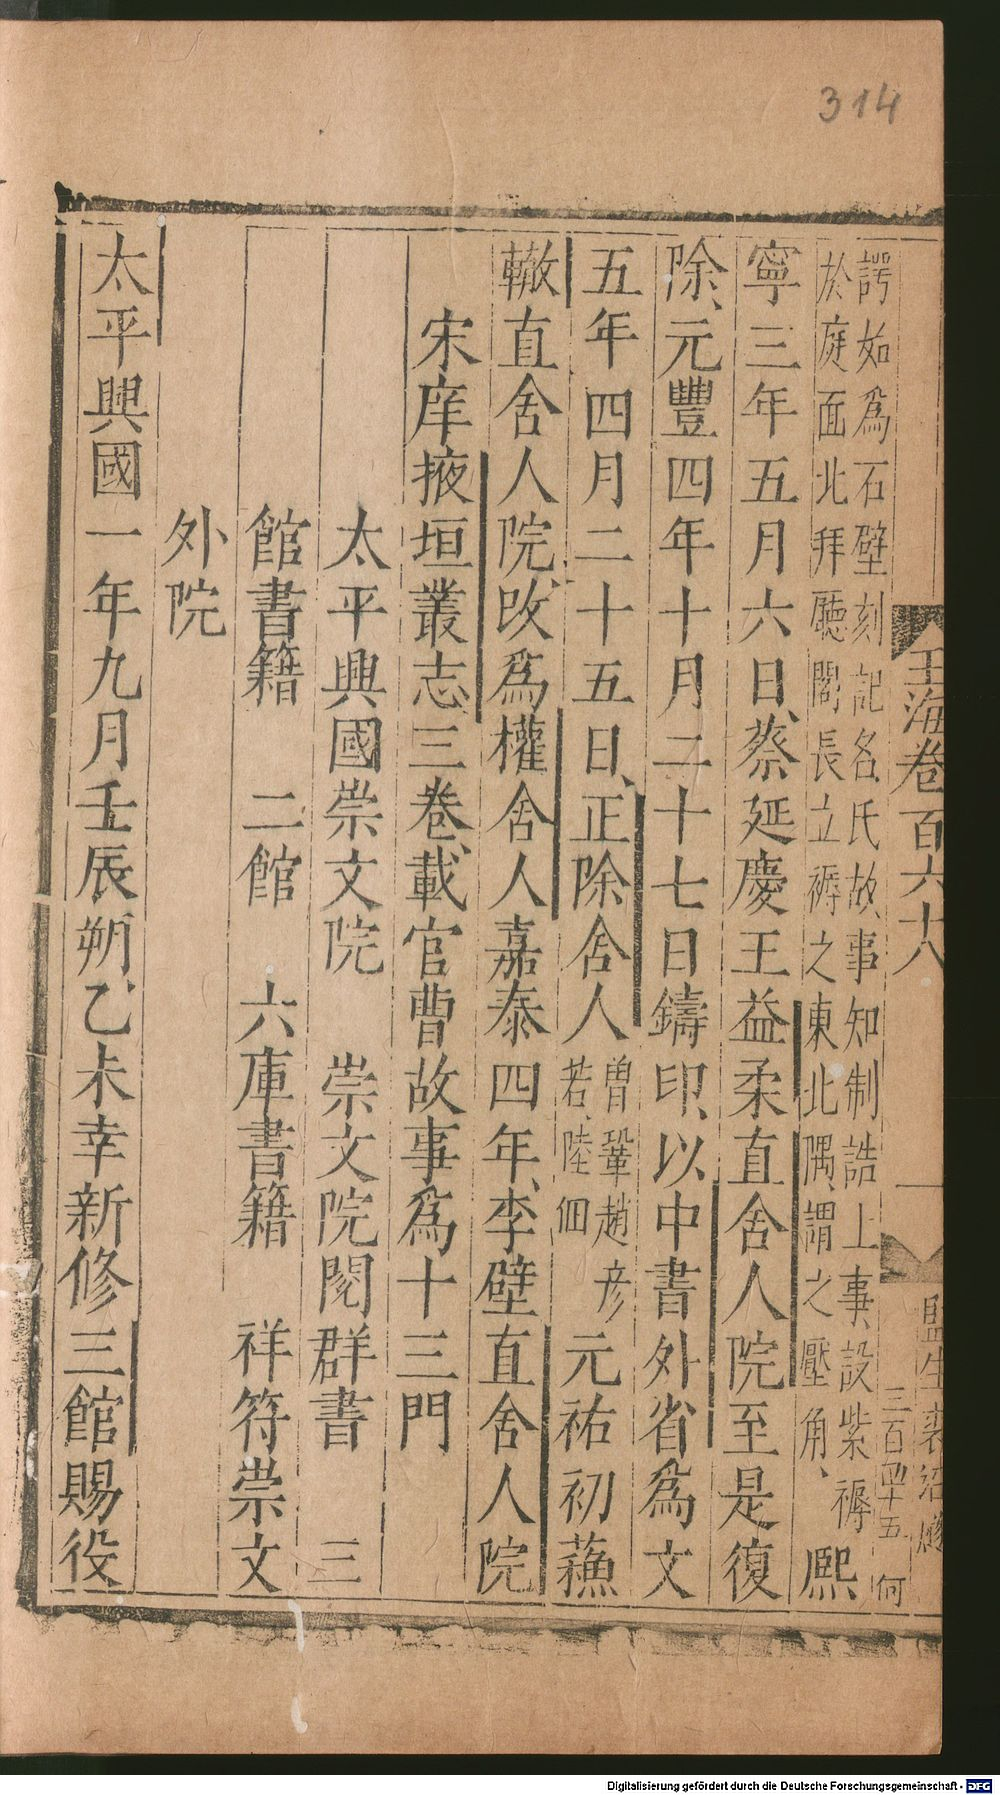 314
玉海卷百六十八
監生裴
三百四十五 何
諤如爲石壁刻記名氏故事知制誥上事設紫褥
於庭面北拜廳閣長立褥之東北隅謂之壓角、熙
寧三年五月六日、蔡延慶王益柔直舍人院至是復
除、元豐四年十月二十七日鑄印、以中書外省爲文
五年四月二十五日、正除舍人曾鞏趙彦若、陸佃元祐初蘓
轍直舍人院、改爲權舍人嘉泰四年、李壁直舍人院
宋庠掖垣叢志三卷、載官曹故事爲十三門
太平興國崇文院 崇文院閱群書 三
館書籍 二館 六庫書籍 祥符崇文
外院
太平興國一年九月壬辰朔、乙未幸新修三館賜役
Digitalisierung gefördert durch die Deutsche Forschungsgemeinschaft - DFG